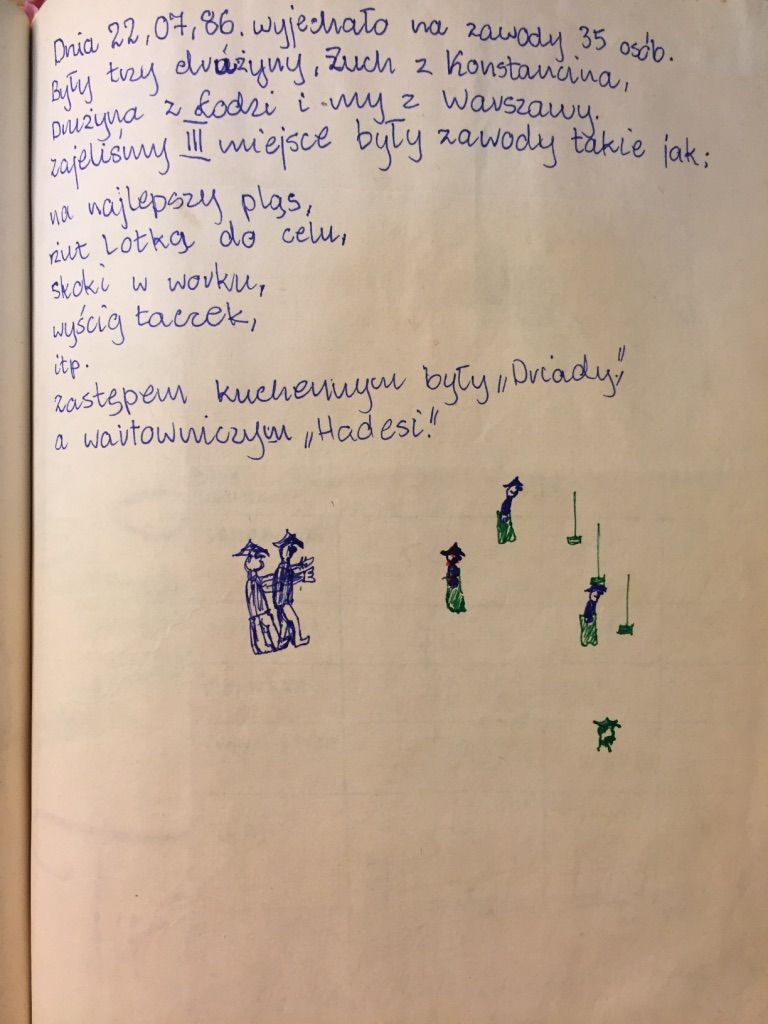 Dnia 22,07,86. wyjechało na zawody 35 osób.
Były trzy drużyny, Zuch z Konstancina,
Drużyna z Łodzi i my z Warszawy.
zajeliśmy III miejsce były zawody takie jak;
na najlepszy pląs,
rzut Lotką do celu,
skoki w worku,
wyścig taczek,
itp.
zastępem kuchennym były „Driady,"
a wartowniczym „Hadesi."